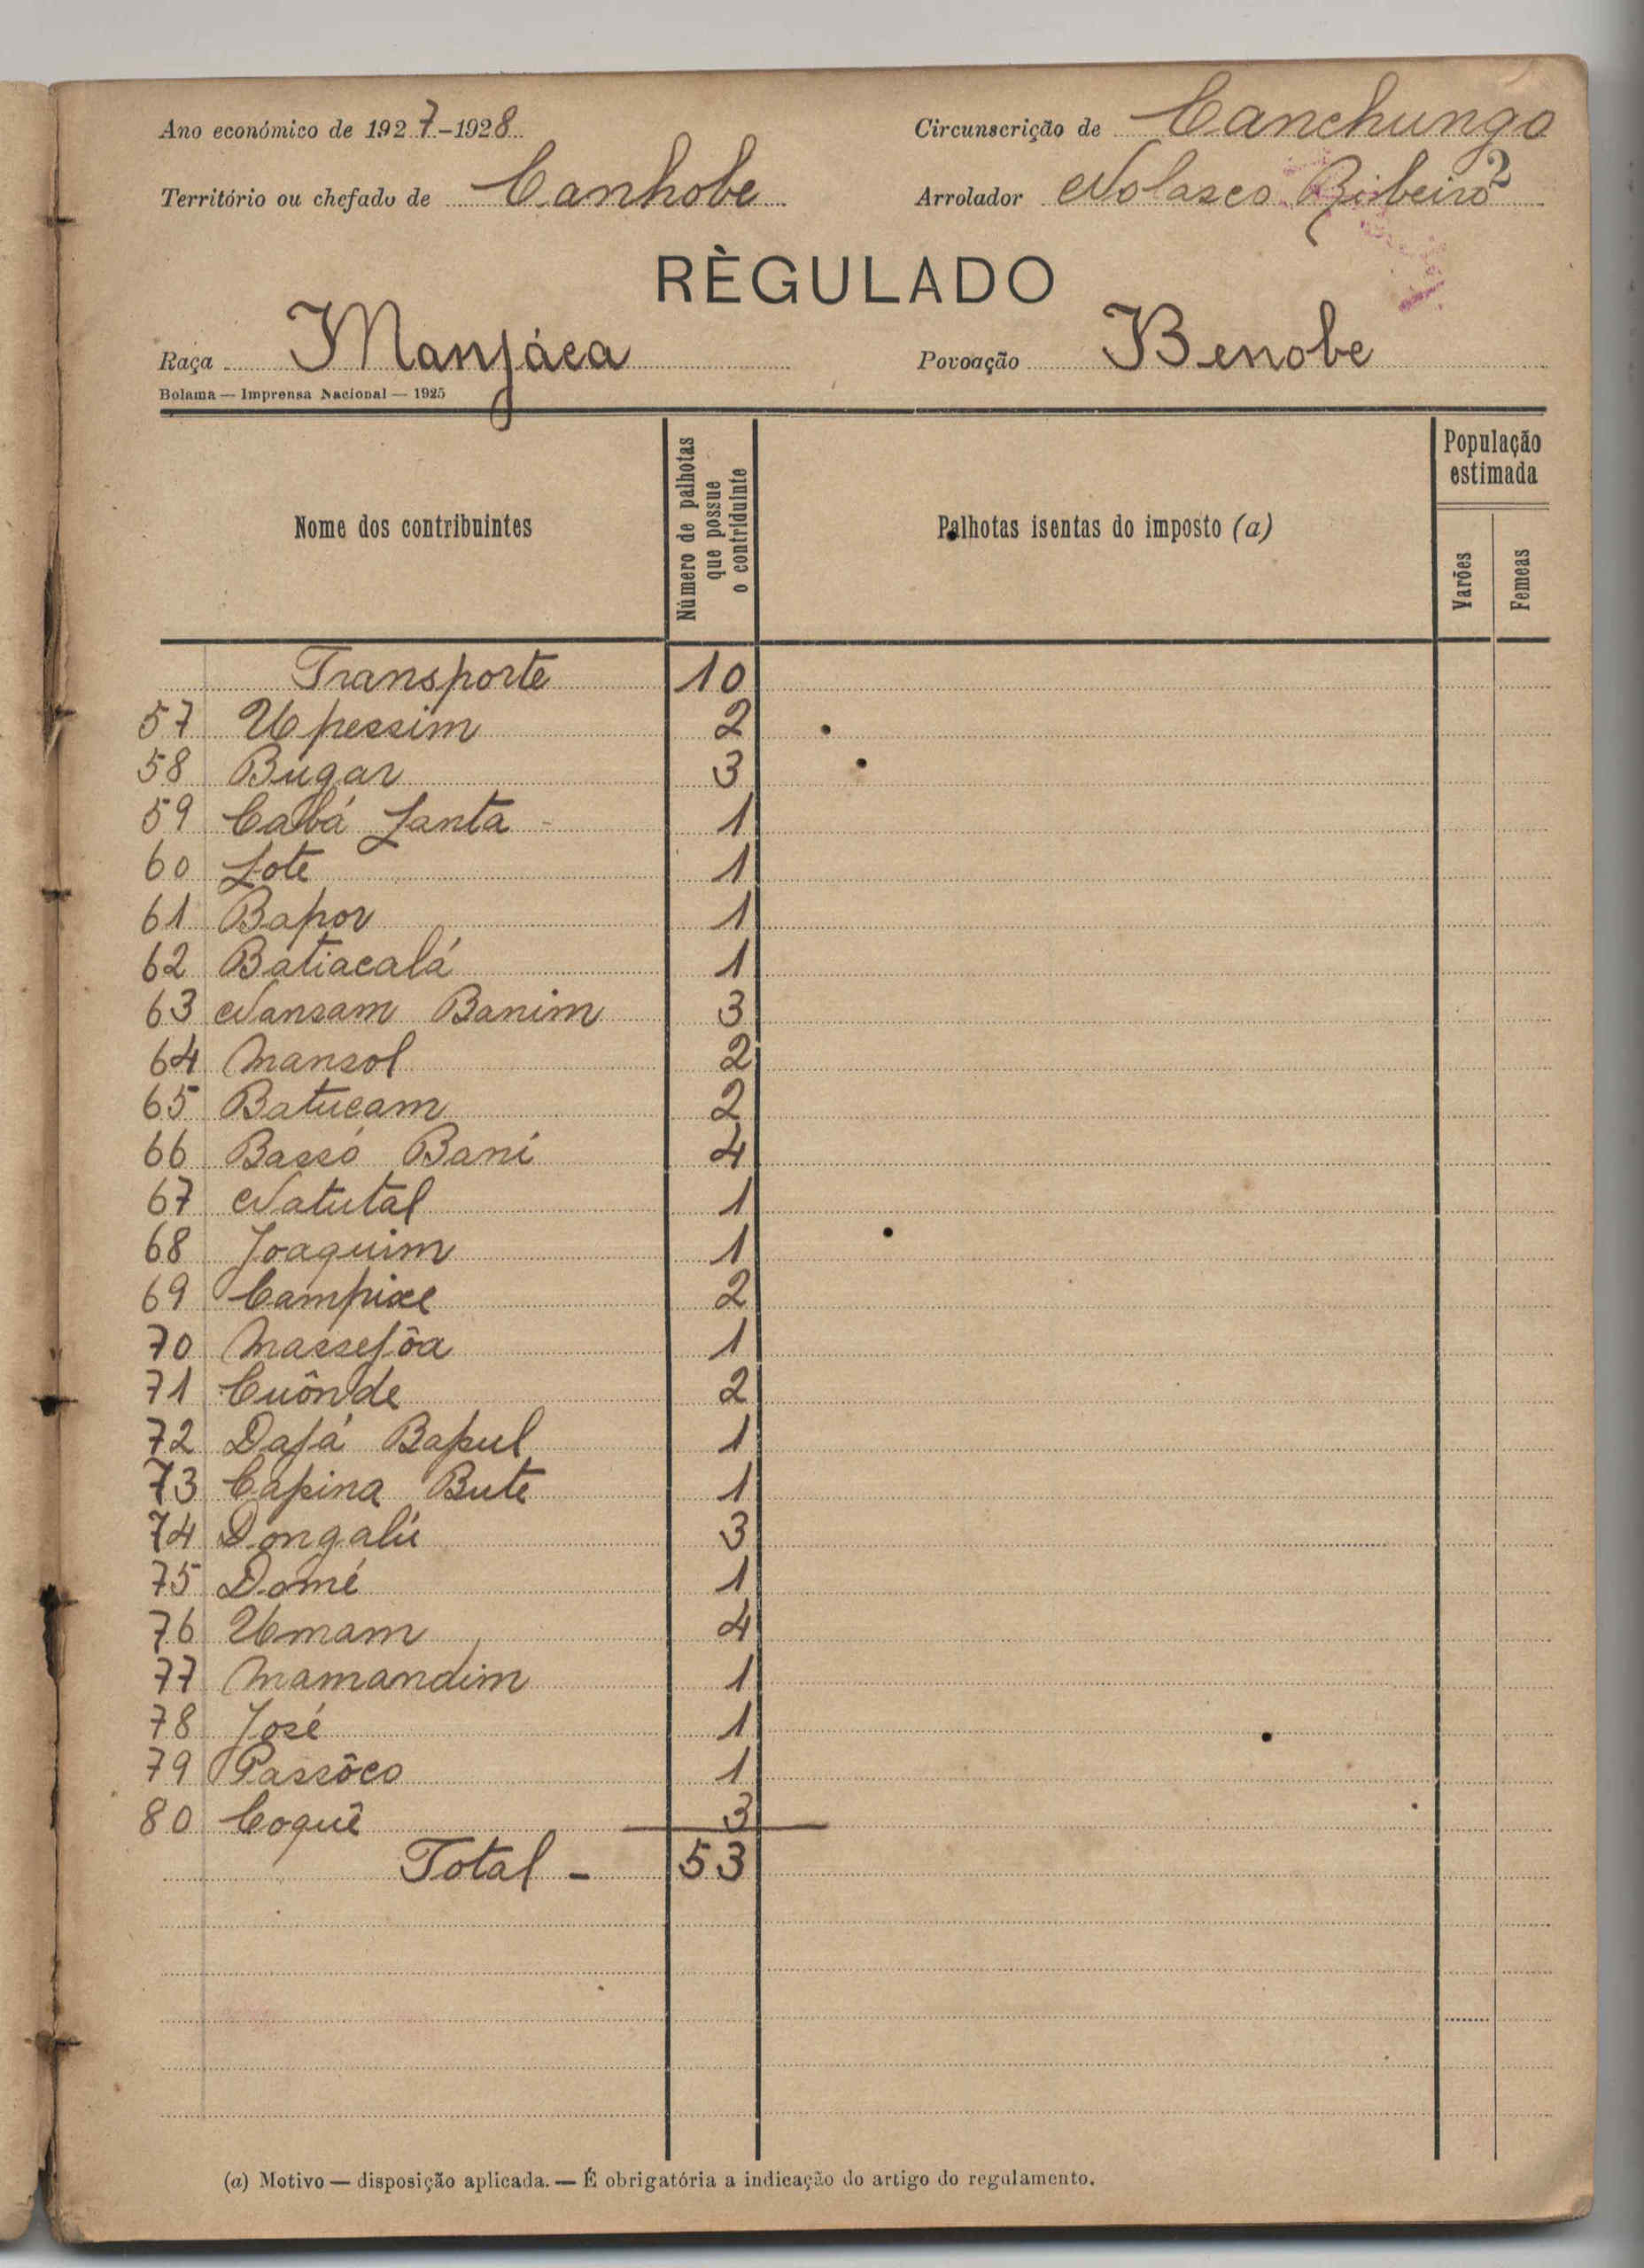 Ano económico de 1927-1928 Circunscrição de Canchungo
2
Território ou chefado de Canhobe Arrolador Nolasco Ribeiro
RÈGULADO
Raça Manjáca Povoação Benobe
Bolama — Imprensa Nacional — 1925
Nome dos contribuintes
Número de palhotas
que possue
o contriduinte
Palhotas isentas do imposto (a)
População
estimada
Varões Femeas
Transporte 10
57 Upessim 2
58 Bugar 3
59 Cabá Lanta - 1
60 Lote 1
61 Bapor 1
62 Batiacalá 1
63 Nansam Banim 3
64 Mansol 2
65 Batucam 2
66 Bassó Bani 4
67 Natutal 1
68 Joaquim 1
69 Campixe 2
70 Massefôa 1
71 Cuônde 2
72 Dafá Bapul 1
73 Capina Bute 1
74 Dongalú 3
75 Domé 1
76 Umam 4
77 Mamandim 1
78 José 1
79 Passôco 1
80 Coquê 3
Total - 53
(a) Motivo — disposição aplicada. — É obrigatória a indicação do artigo do regulamento.